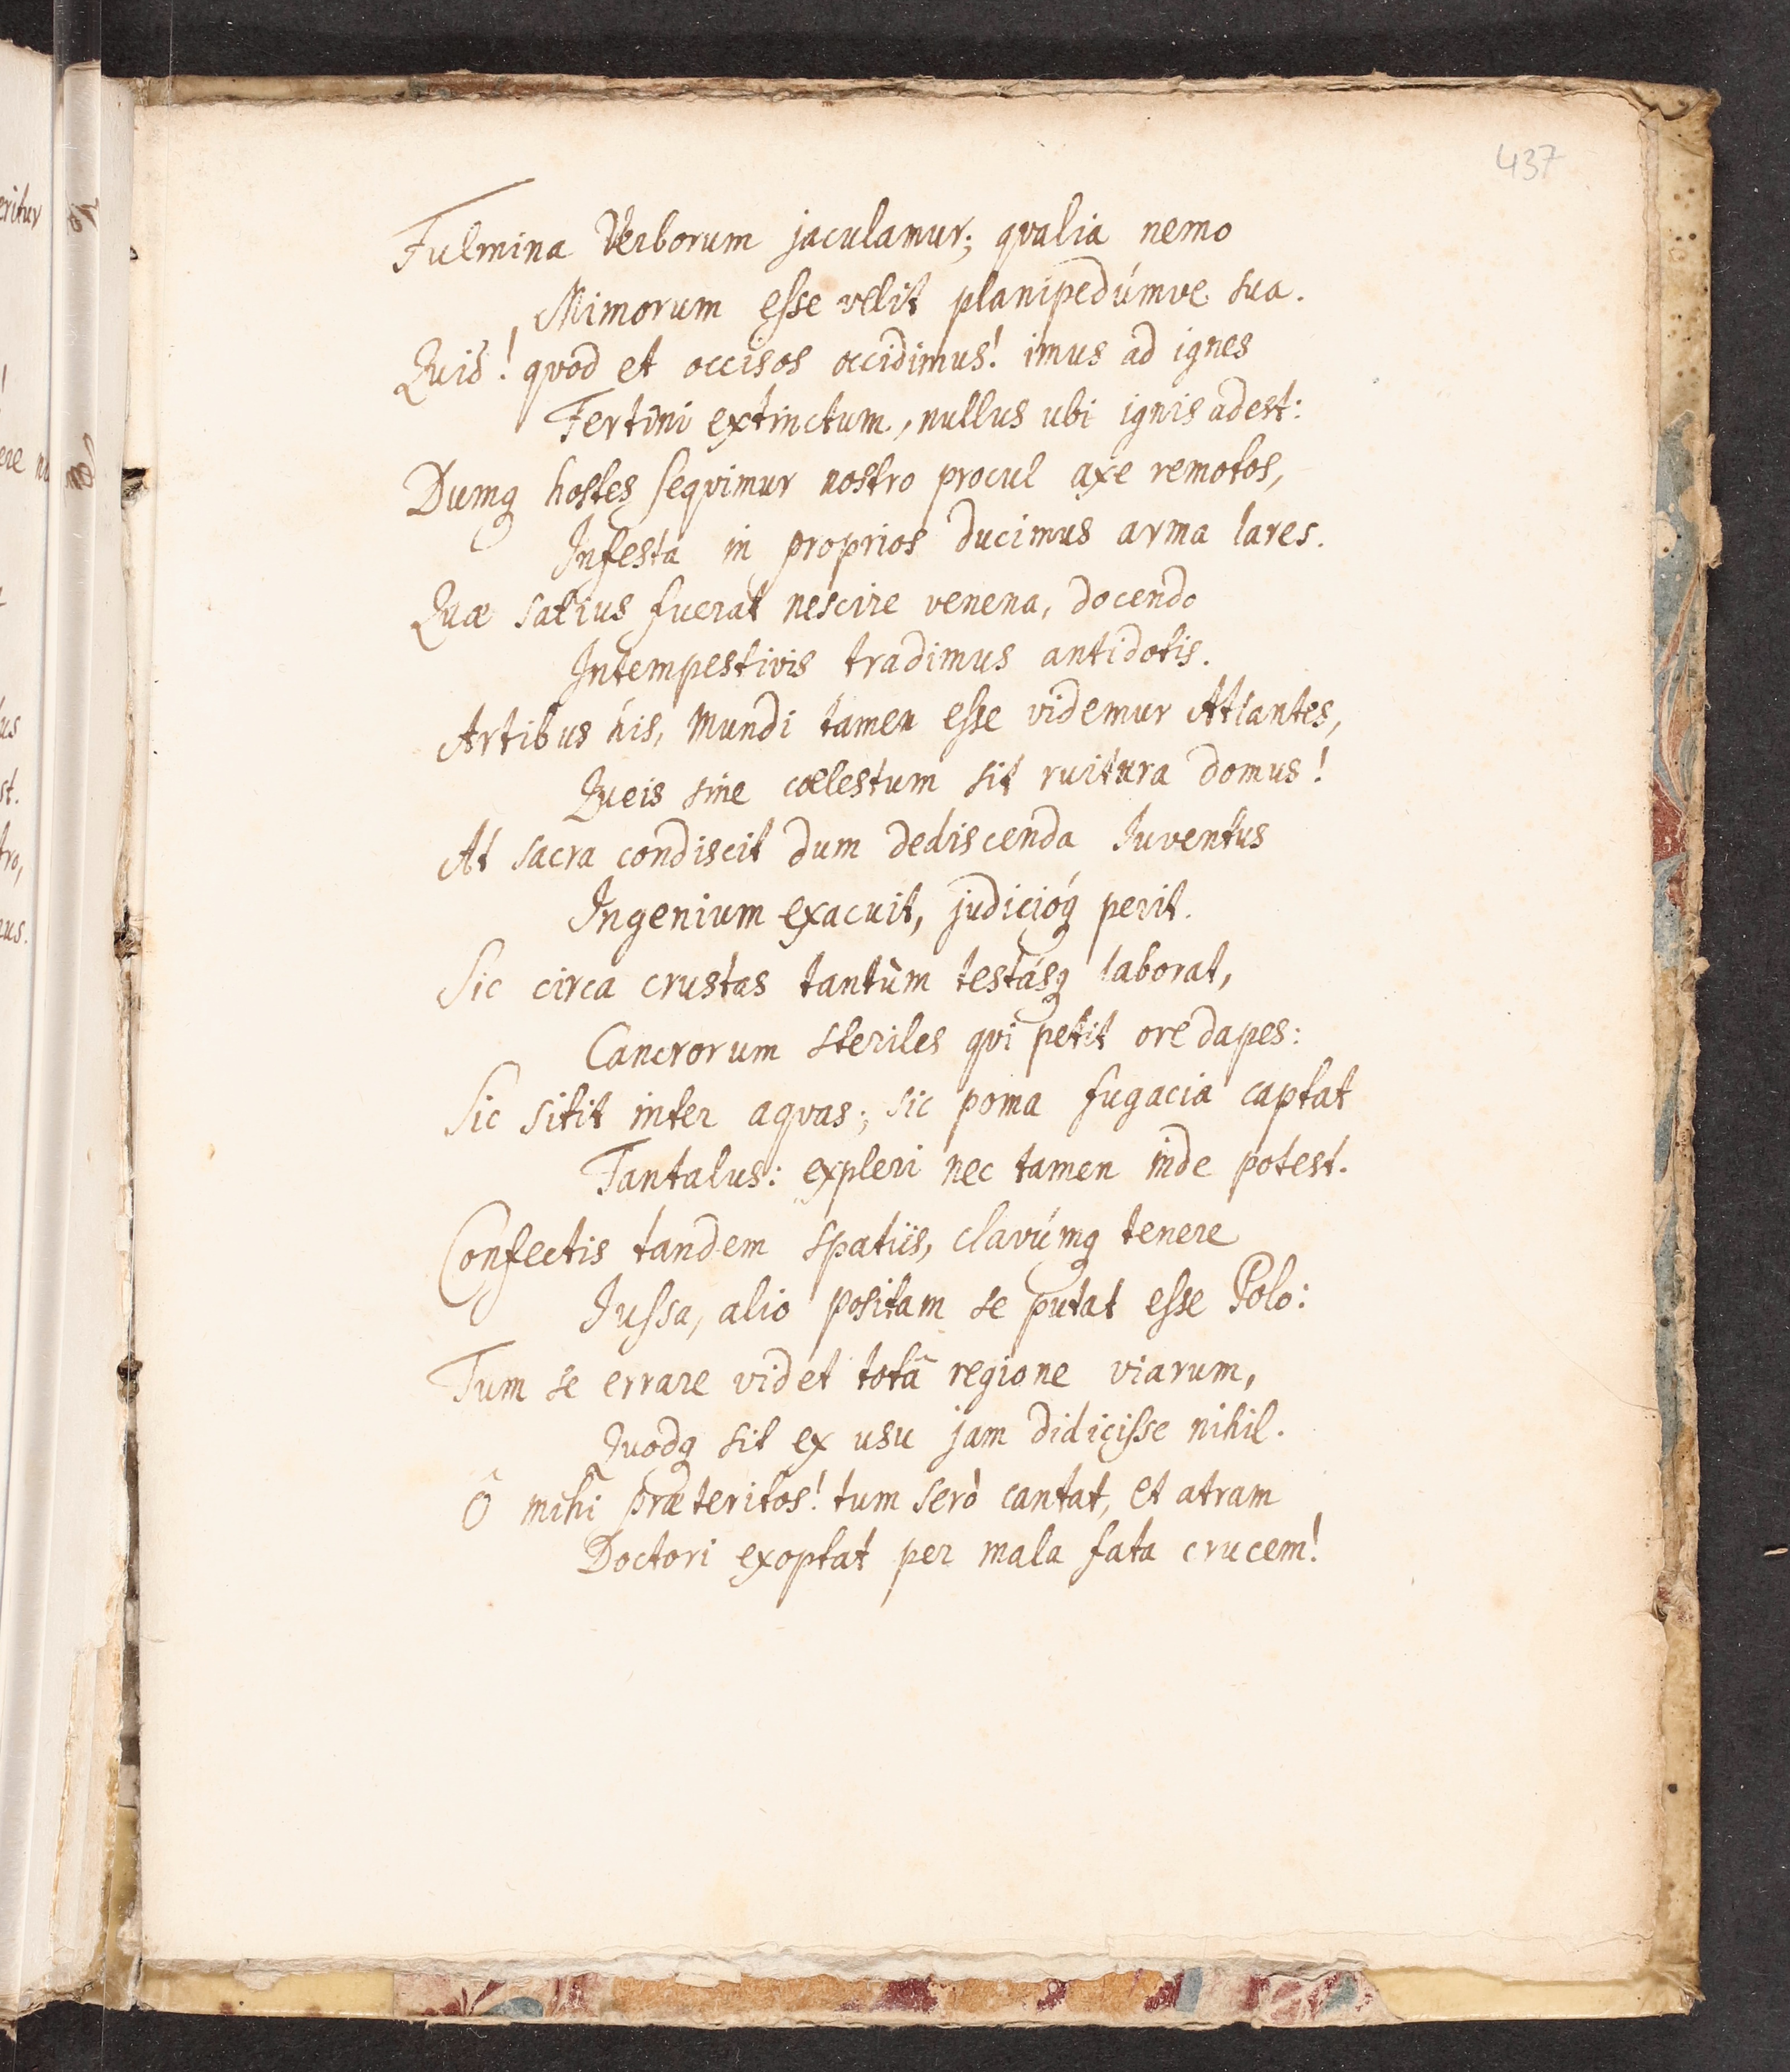 437
Fulmina Verborum jaculamur; qvalia nemo
Mimorum esse velit planipedúmve sua.
Quid! qvod et occisos occidimus! imus ad ignes
extinctum, nullus ubi ignis adest:
Dumq hostes seqvimur nostro procul axe remotos,
Infesta in proprios ducimus arma lares.
Quæ satius fuerat nescire venena, docendo
Intempestivis tradimus antidotis.
Artibus his, Mundi tamen esse videmur Atlantes,
Queis sine cœlestum sit ruitura domus!
At sacra condiscit dum dediscenda Iuventus
Ingenium exacuit, judicióq perit.
Sic circa crustas tantùm testásq laborat,
Cancrorum steriles qvi petit ore dapes:
Sic sitit inter aqvas; sic poma fugacia captat
Tantalus: expleri nec tamen inde potest.
Confectis tandem spatiis, clavúmq tenere
Jussa, alio positam se putat esse Polo:
Tum se errare videt totâ regione viarum,
Quodq sit ex usu jam didicisse nihil.
Ô mihi præteritos! tum serò cantat, et atram
Doctori exoptat per mala fata crucem!
eritur
!
ere
us
st.
tro,
us.